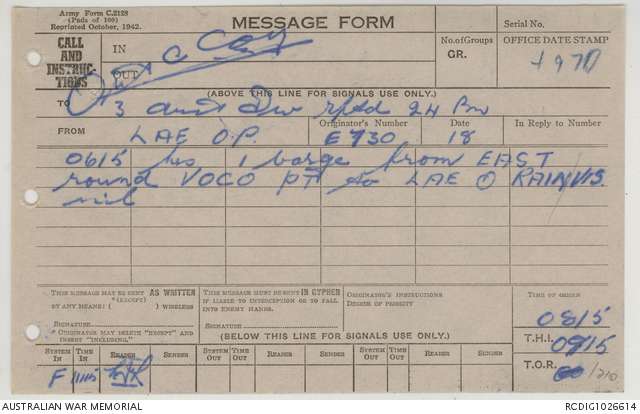 Army Form C.2128
(Pads of 100)
Reprinted October, 1942.
MESSAGE FORM
Serial No.
CALL AND INSTRUCTIONS
IN
OUT
No. of Groups
GR.
OFFICE DATE STAMP
(ABOVE THIS LINE FOR SIGNALS USE ONLY.)
TO
3 Aust Div rptd 24 Bn
FROM
LAE O.P.
Originator's Number
E 730
Date
18
In Reply to Number
0615 hrs 1 barge from EAST
round VOCO PT to LAE RAIN VIS.
nil
THIS MESSAGE MAY BE SENT AS WRITTEN
*(EXCEPT)
BY ANY MEANS: ( ) WIRELESS
SIGNATURE
*ORIGINATOR MAY DELETE "EXCEPT" AND INSERT "INCLUDING."
THIS MESSAGE MUST BE SENT IN CYPHER
IF LIABLE TO INTERCEPTION OR TO FALL INTO ENEMY HANDS.
SIGNATURE
ORIGINATOR'S INSTRUCTIONS
DEGREE OF PRIORITY
TIME OF ORIGIN
0815
T.H.I.
0915
T.O.R.
(BELOW THIS LINE FOR SIGNALS USE ONLY.)
SYSTEM IN
TIME IN
READER
SENDER
SYSTEM OUT
TIME OUT
READER
SENDER
SYSTEM OUT
TIME OUT
READER
SENDER
F
AUSTRALIAN WAR MEMORIAL
RCDIG1026614